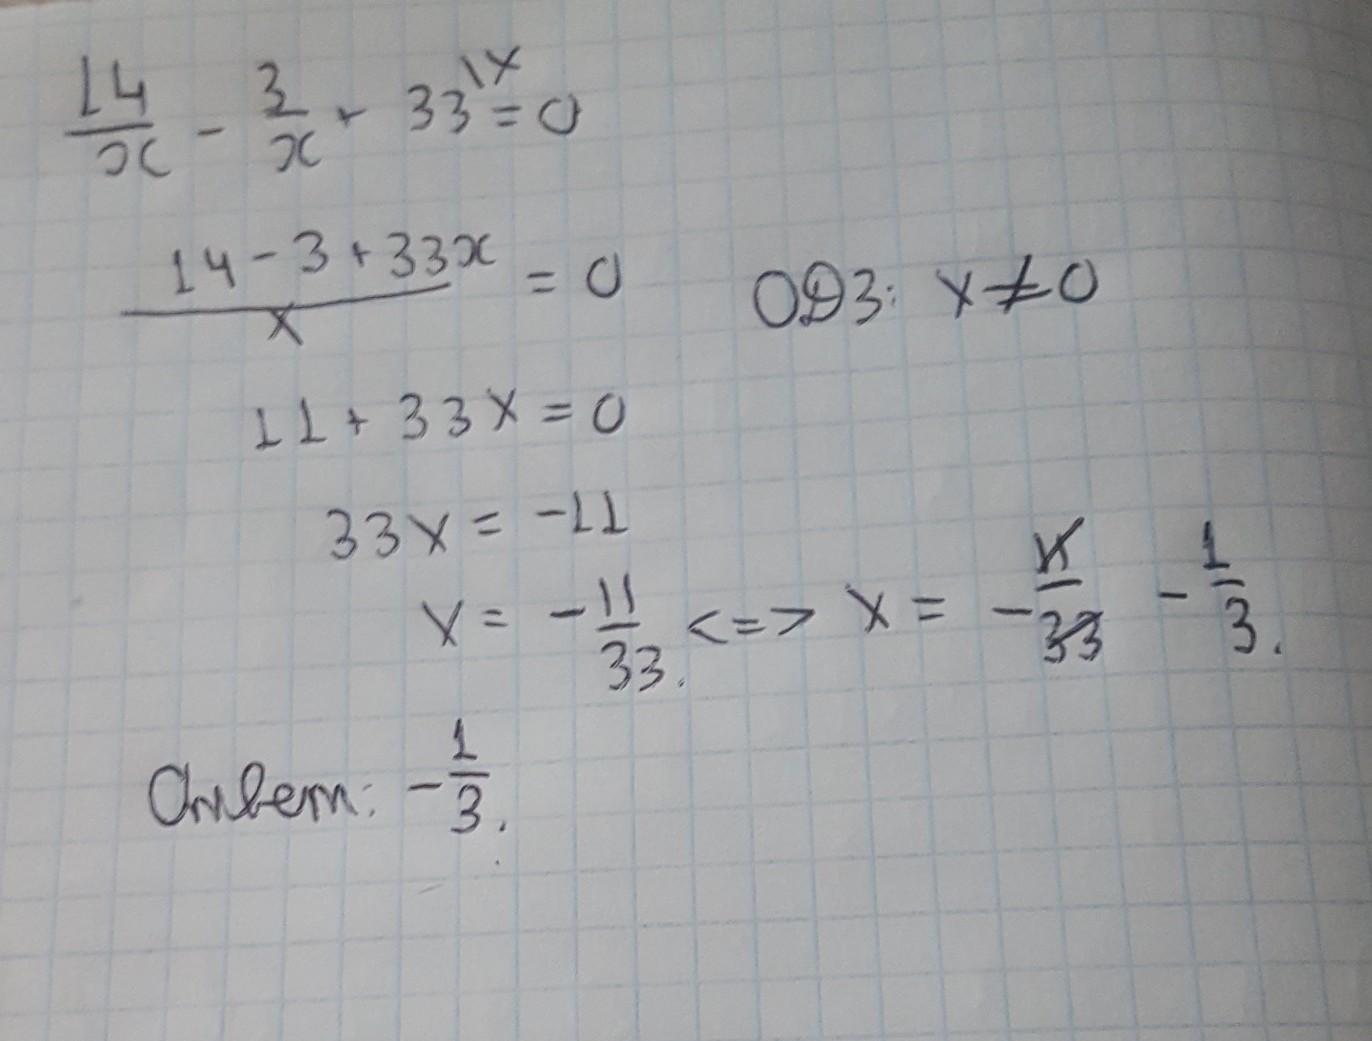 14/x - 3/x + 33^\x = 0
(14 - 3 + 33x)/x = 0 ОДЗ: x ≠ 0
11 + 33x = 0
33x = -11
x = -11/33. <=> x = -11/33 -1/3.
Ответ: -1/3.